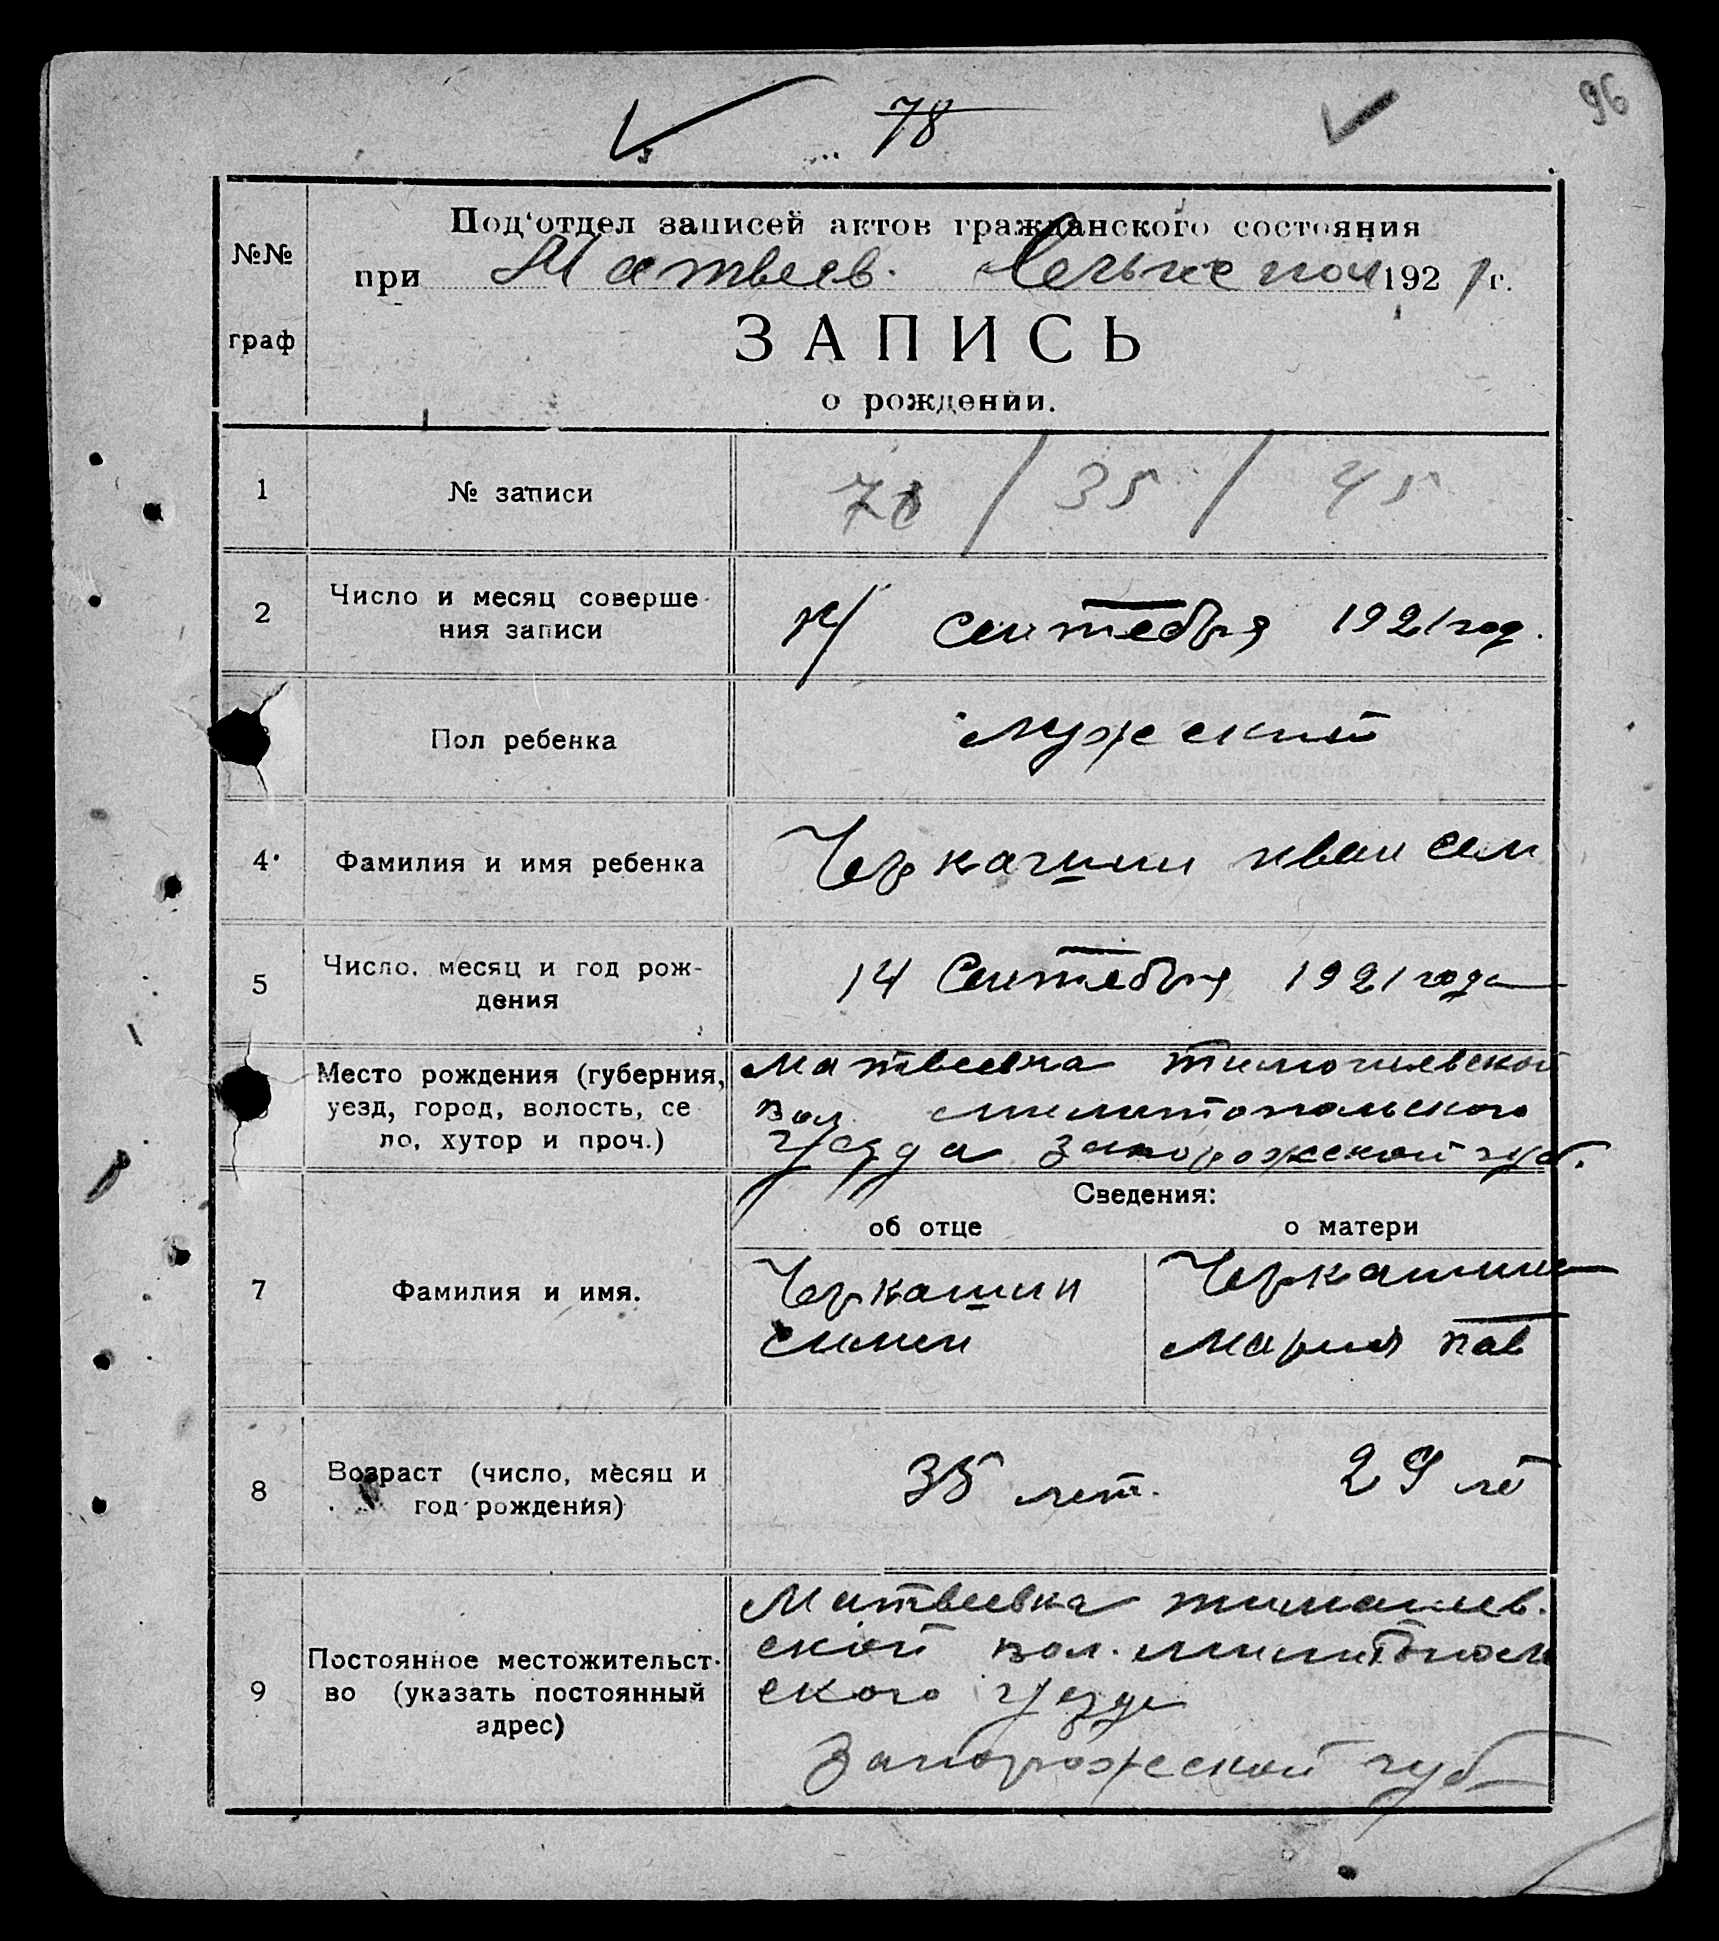 96
78
Под‘отдел записей актов гражданского состояния
при Матвеев. 1921 г.
№№
граф
ЗАПИСЬ
о рождении.
1 № записи 78 / 35 / 45
2 Число и месяц соверше-
ния записи
сентебря 1921 год.
Пол ребенка мужский
4 Фамилия и имя ребенка Черкашин иван сем
5 Число, месяц и год рож-
дения
14 Сентебря 1921 года
Место рождения (губерния,
уезд, город, волость, се
ло, хутор и проч.)
Матвеевка
вол. милитопольского
уезда запорожской губ.
Сведения:
об отце о матери
7 Фамилия и имя.
Черкашин
симен
Черкашина
Мария пав
8 Возраст (число, месяц и
год рождения)
35 лет. 29 ле
9 Постоянное местожительст-
во (указать постоянный
адрес)
Матвеевка тимашев.
ской вол. милитопол
ского уезда
Запорожской губ